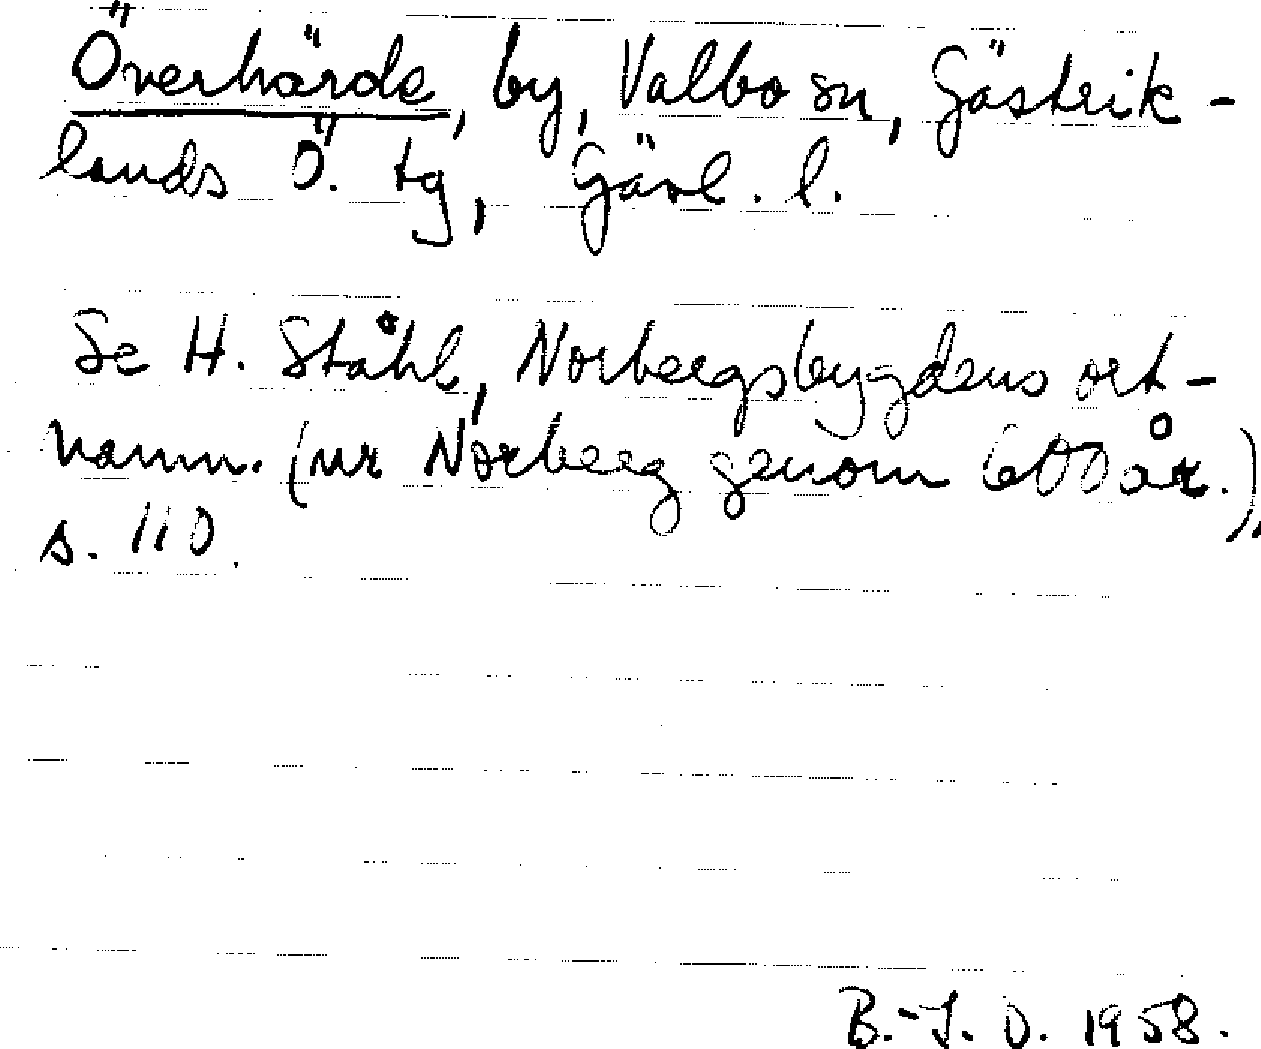 Överhärde, by, Valbo sn, Gästrik-
lands Ö. tg, Gävl. l.
Se H. Ståhl, Norbergsbygdens ort-
namn. (ur Norberg genom 600 år.),
s. 110.
B.-J. O. 1958.